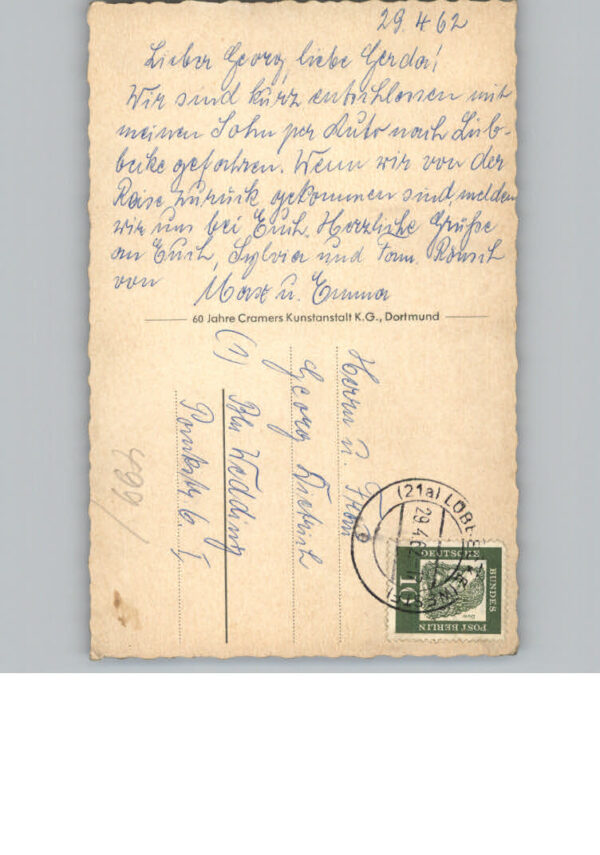 29.4.62
Lieber Georg, liebe Gerda!
Wir sind kurz entschlossen mit
meinen Sohn per Auto nach Lüb-
beke gefahren. Wenn wir von der
Reise zurück gekommen sind, melden
wir uns bei Euch. Herzliche Grüße
an Euch, Sylvia und Fam.
von Max u. Emma
60 Jahre Cramers Kunstanstalt K.G., Dortmund
Herrn u. Frau
Georg Dietrich
(1) Bln Wedding
6. I
(21a) LÜBBE
29.4.62
DEUTSCHE
BUNDES
POST BERLIN
10